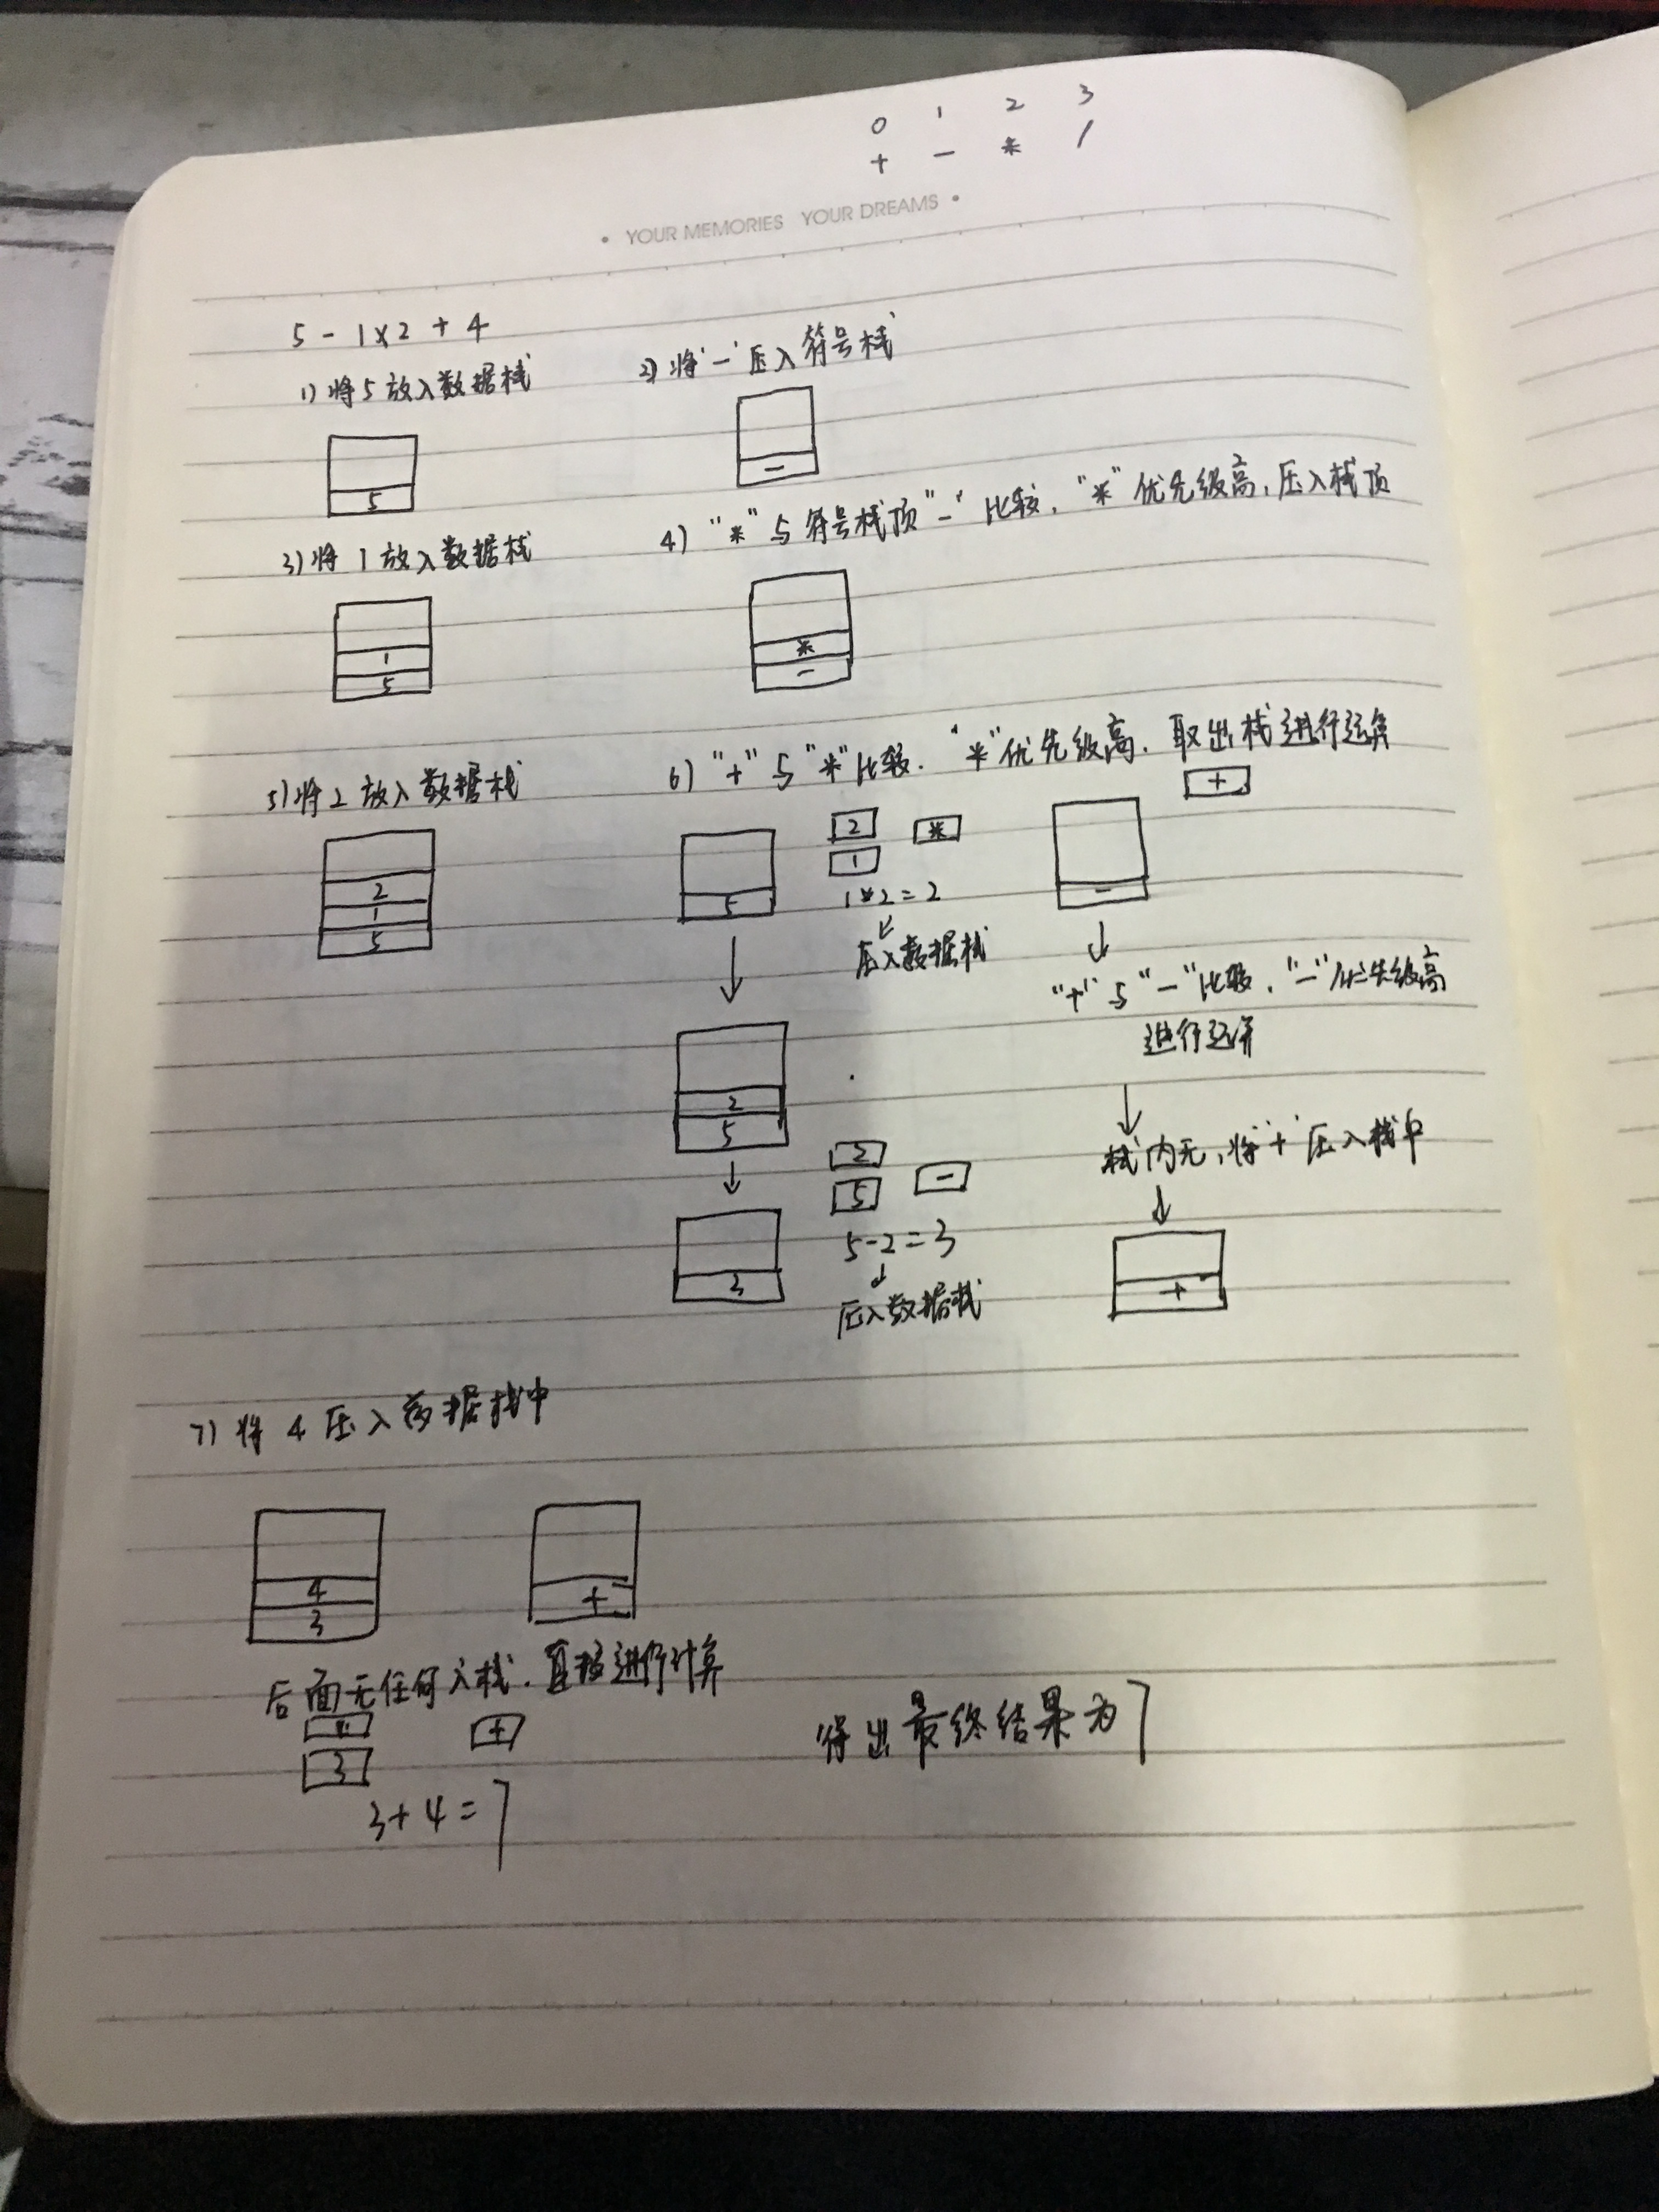 0 1 2 3
+ - * /
• YOUR MEMORIES YOUR DREAMS •
5 - 1×2 + 4
1) 将5放入数据栈
2) 将'-'压入符号栈
5
-
3) 将1放入数据栈
4) "*"与符号栈顶"-"比较,"*"优先级高,压入栈顶
1
5
*
-
5) 将2放入数据栈
6) "+"与"*"比较."*"优先级高.取出栈进行运算
+
2
1
5
5
2
1
*
1*2=2
压入数据栈
-
"+"与"-"比较,"-"优先级高
进行运算
2
5
2
5
-
5-2=3
压入数据栈
3
栈内无,将'+'压入栈中
+
7) 将4压入数据栈中
4
3
+
后面无任何入栈.直接进行计算
4
3
+
3+4=7
得出最终结果为7